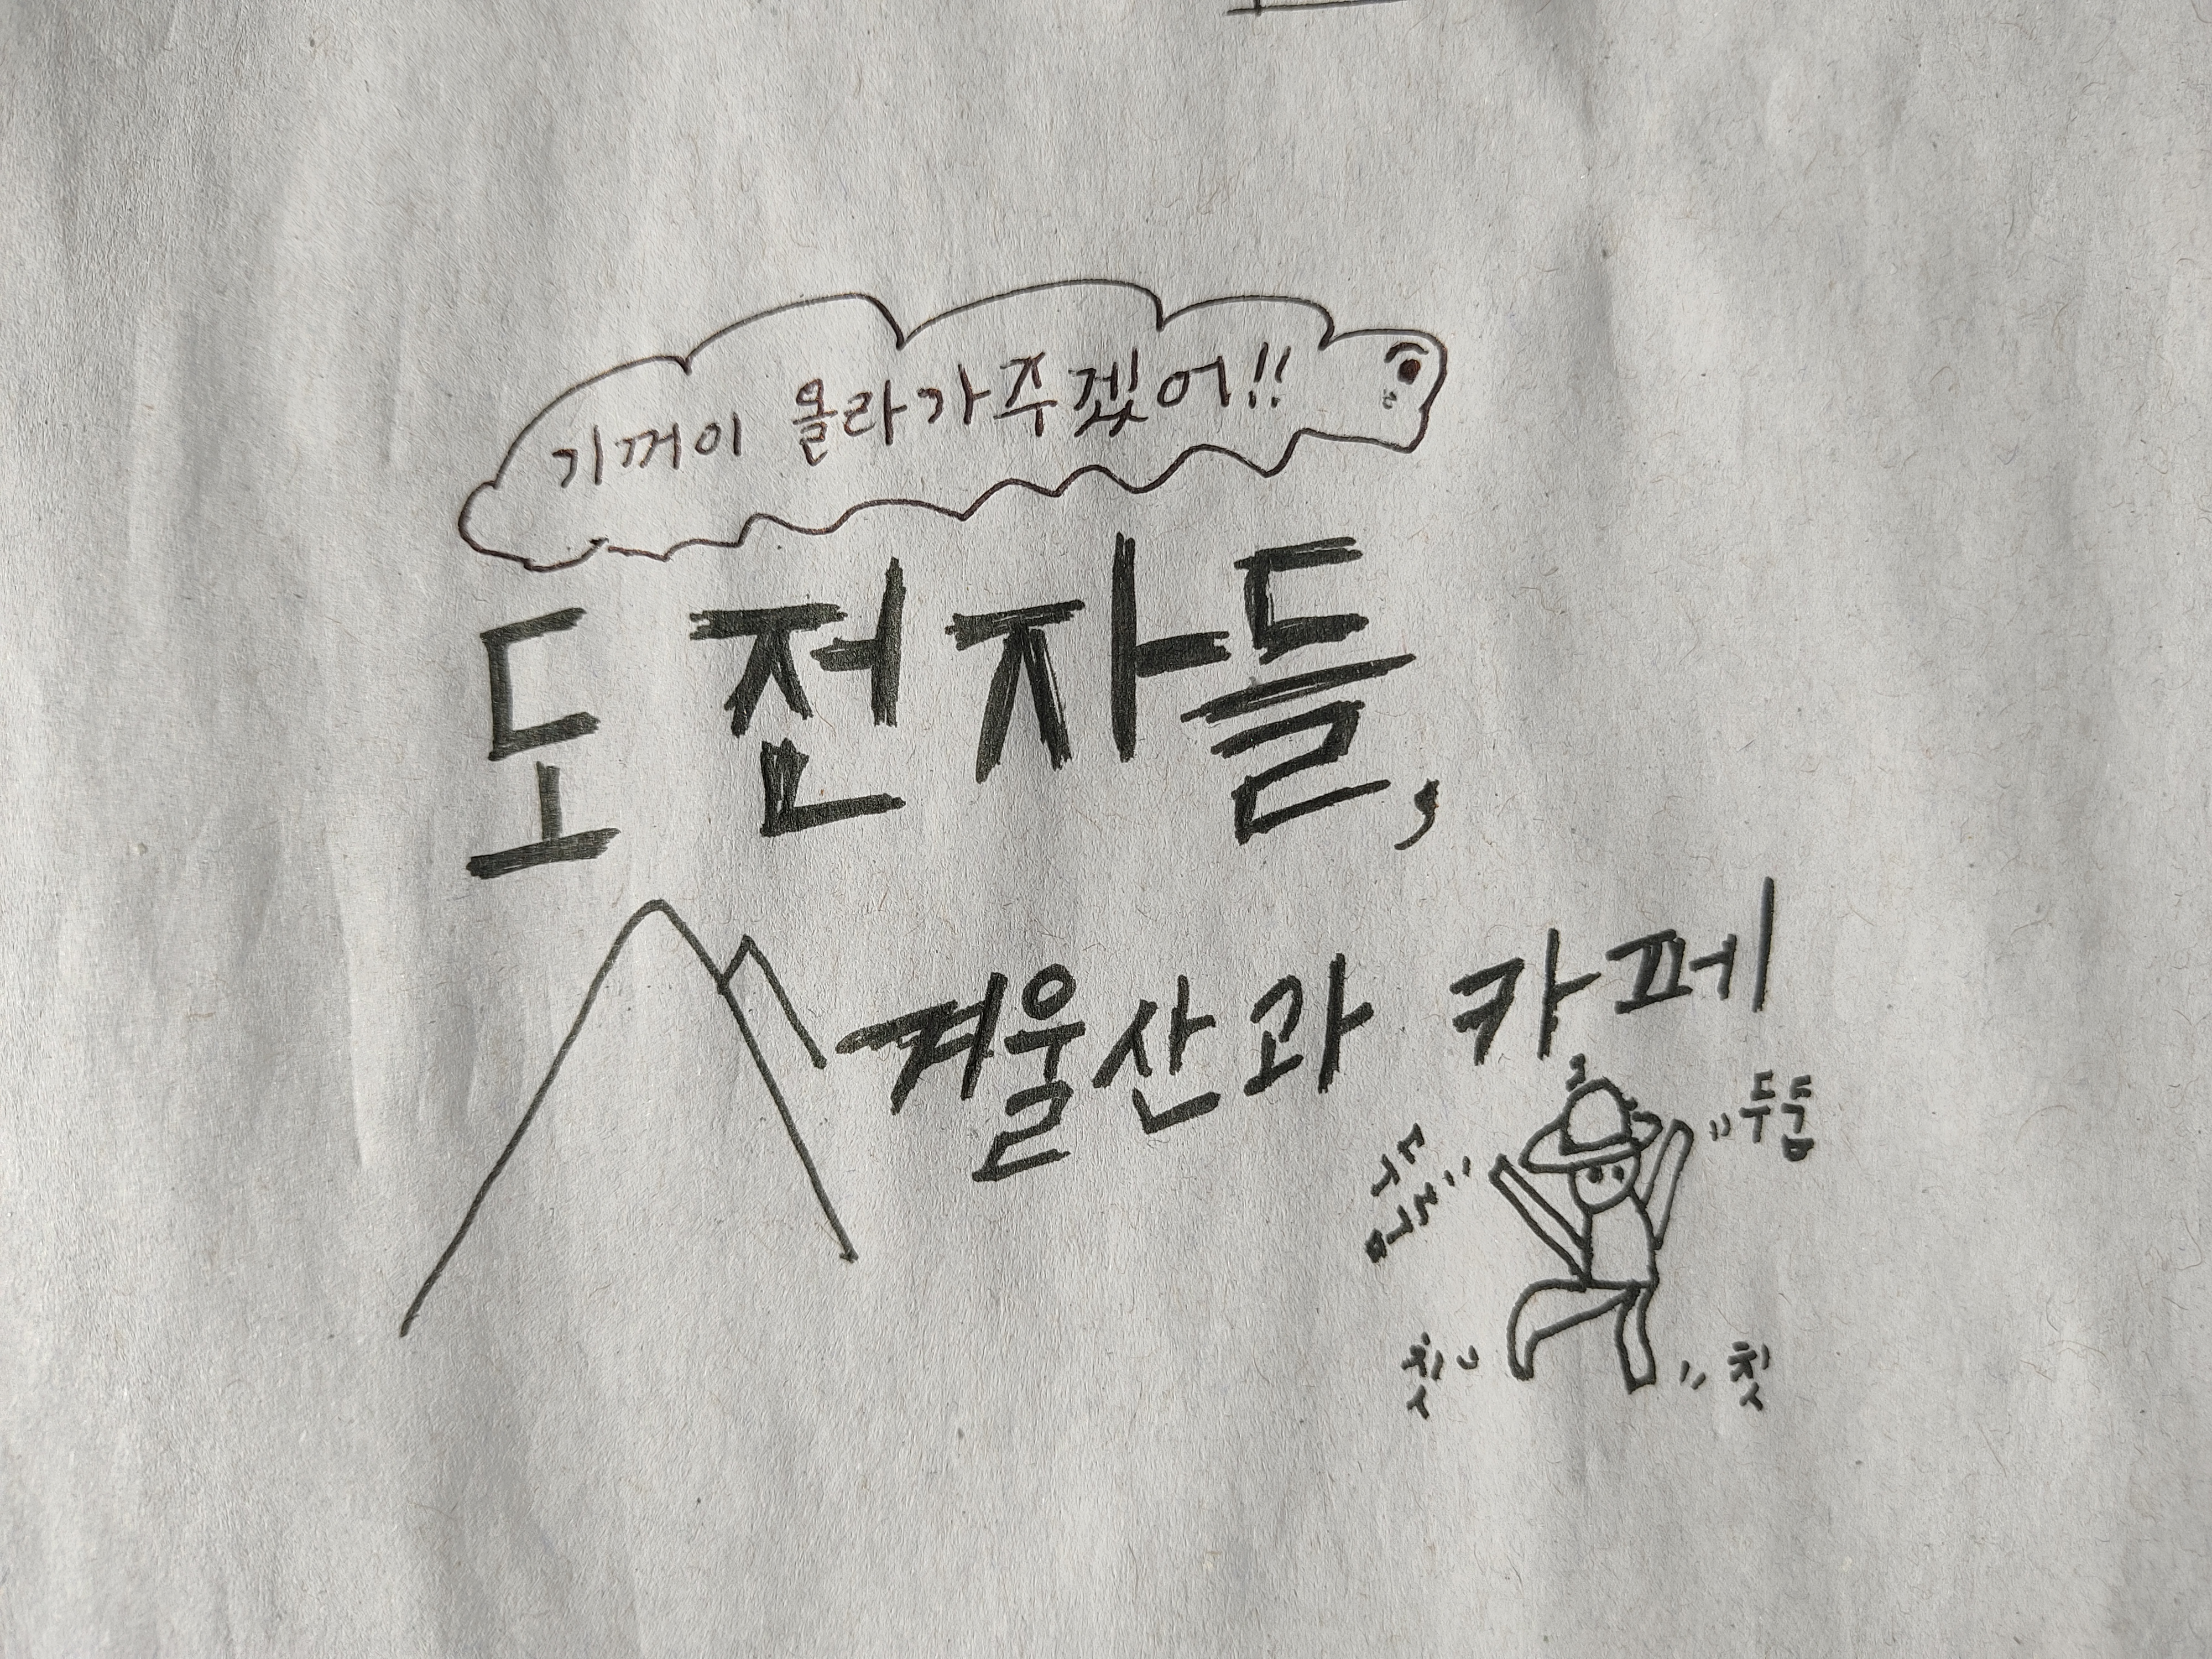 기꺼이 올라가주겠어!!
도전자들,
겨울산과 카페
두둠
두둠
칫
칫